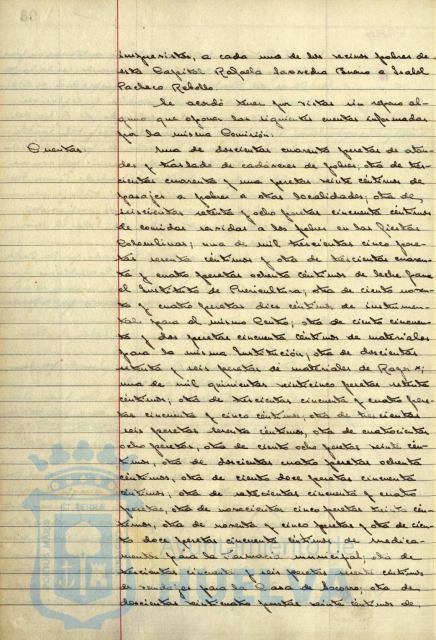 imprevistos, a cada una de los vecinos pobres de
esta Capital Rafaela Saavedra Bueno e Isabel
Pacheco Rebollo.
Se acordó tener por vistas sin reparo al-
guno que oponer las siguientes cuentas informadas
por la misma Comisión:
Cuentas.
una de doscientas cuarenta pesetas de ataú-
des y traslado de cadáveres de pobres; otra de tres-
cientas cuarenta y una pesetas veinte céntimos de
pasajes a pobres a otras localidades; otra de,
seiscientas setenta y ocho pesetas cincuenta céntimos
de comidas servidas a los pobres en las Fiestas
Colombinas; una de mil trescientas cinco pese-
tas sesenta céntimos y otra de trescientas cuaren-
ta y cuatro pesetas ochenta céntimos de leche para
el Instituto de Puericultura; otra de ciento noven-
ta y cuatro pesetas diez céntimos de instrumen-
tal para el mismo Centro; otra de ciento cincuen-
ta y dos pesetas cincuenta céntimos de materiales
para la misma Institución; otra de doscientas
setenta y seis pesetas de materiales de Rayos X;
una de mil quinientas veinticinco pesetas setenta
céntimos; otra de trescientas cincuenta y cuatro pese-
tas cincuenta y cinco céntimos; otra de trescientas
seis pesetas sesenta céntimos, otra de cuatrocientas
ocho pesetas, otra de ciento ocho pesetas veinte cén-
timos, otra de doscientas cuatro pesetas ochenta
céntimos, otra de ciento doce pesetas cincuenta
céntimos, otra de setecientas cincuenta y cuatro
pesetas, otra de novecientas cinco pesetas veinte cén-
timos, otra de noventa y cinco pesetas y otra de cien-
to doce pesetas cincuenta céntimos de medica-
mentos para la Farmacia municipal; otra de
trescientas cincuenta y seis pesetas veinte céntimos
de vendajes para la Casa de Socorro; otra de
doscientas veinticuatro pesetas veinte céntimos de,